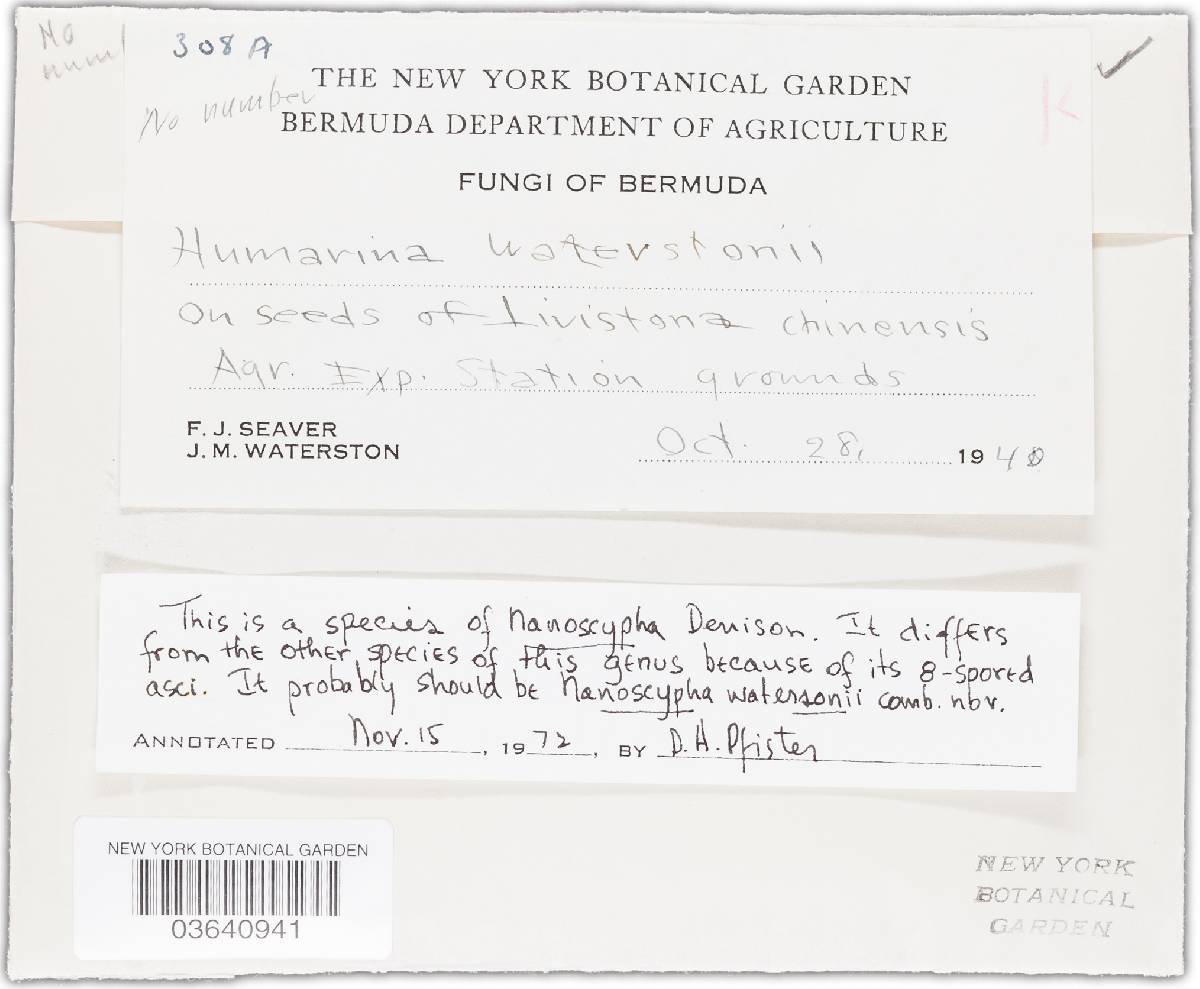 No
num
308 A
No number
THE NEW YORK BOTANICAL GARDEN
BERMUDA DEPARTMENT OF AGRICULTURE
K
FUNGI OF BERMUDA
Humarina waterstonii
On seeds of Livistona chinensis
Agr. Exp. Station grounds
F. J. SEAVER
J. M. WATERSTON
Oct. 28, 1940
This is a species of Nanoscypha Denison. It differs
from the other species of this genus because of its 8-spored
asci. It probably should be Nanoscypha watersonii comb. nov.
ANNOTATED Nov. 15, 1972, BY D. H. Pfister
NEW YORK BOTANICAL GARDEN
03640941
NEW YORK
BOTANICAL
GARDEN